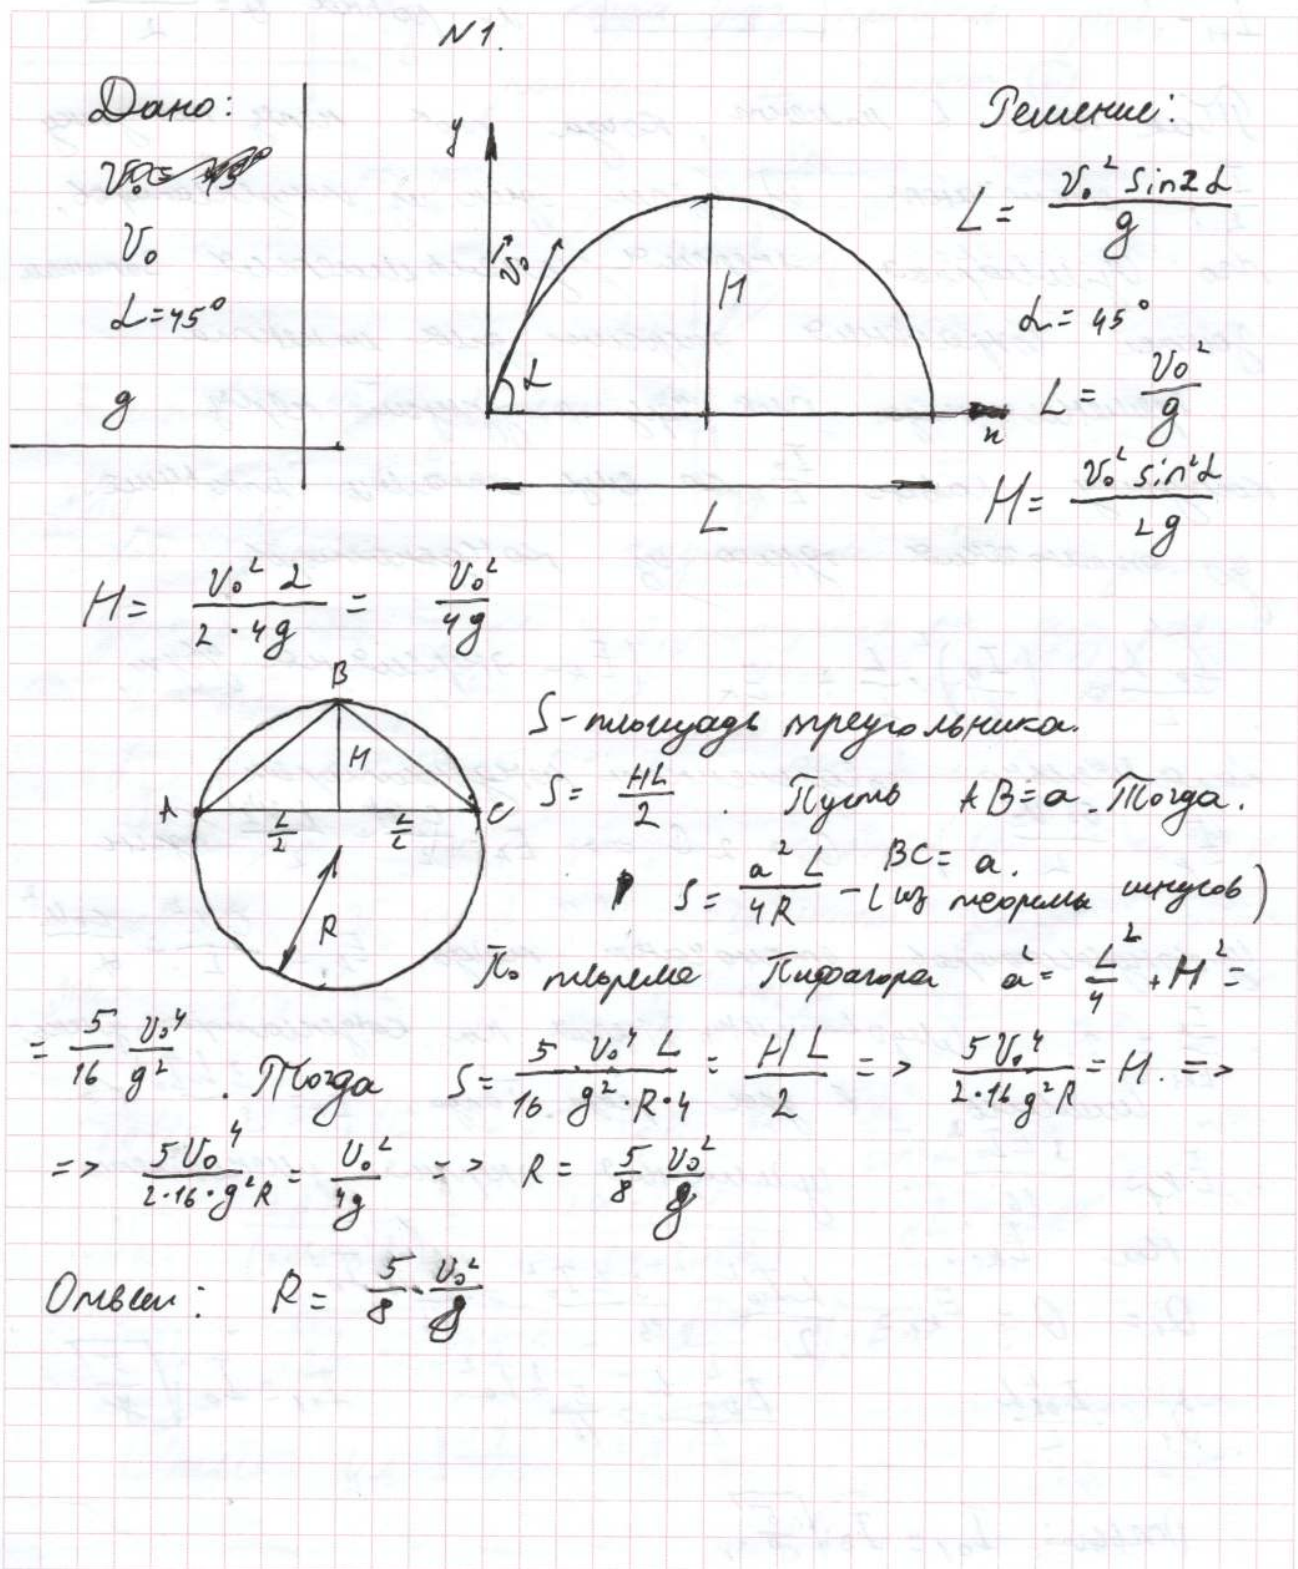 N1.
Дано:
V₀ = 45°
V₀
α=45°
g
y
V₀
α
H
x
L
Решение:
L = V₀² sin2α / g
α = 45°
L = V₀² / g
H = V₀² sin²α / 2g
H = V₀² 2 / 2·4g = V₀² / 4g
B
H
A
C
L/2 L/2
R
S - площадь треугольника.
S = HL / 2 . Пусть AB = a. Тогда.
BC = a.
S = a² L / 4R - (из теоремы синусов)
По теореме Пифагора a² = L² / 4 + H² =
= 5/16 V₀⁴ / g² . Тогда S = 5 V₀⁴ L / 16 g²·R·4 = HL / 2 => 5V₀⁴ / 2·16 g²R = H. =>
=> 5V₀⁴ / 2·16·g²R = V₀² / 4g => R = 5/8 V₀² / g
Ответ: R = 5/8 · V₀² / g